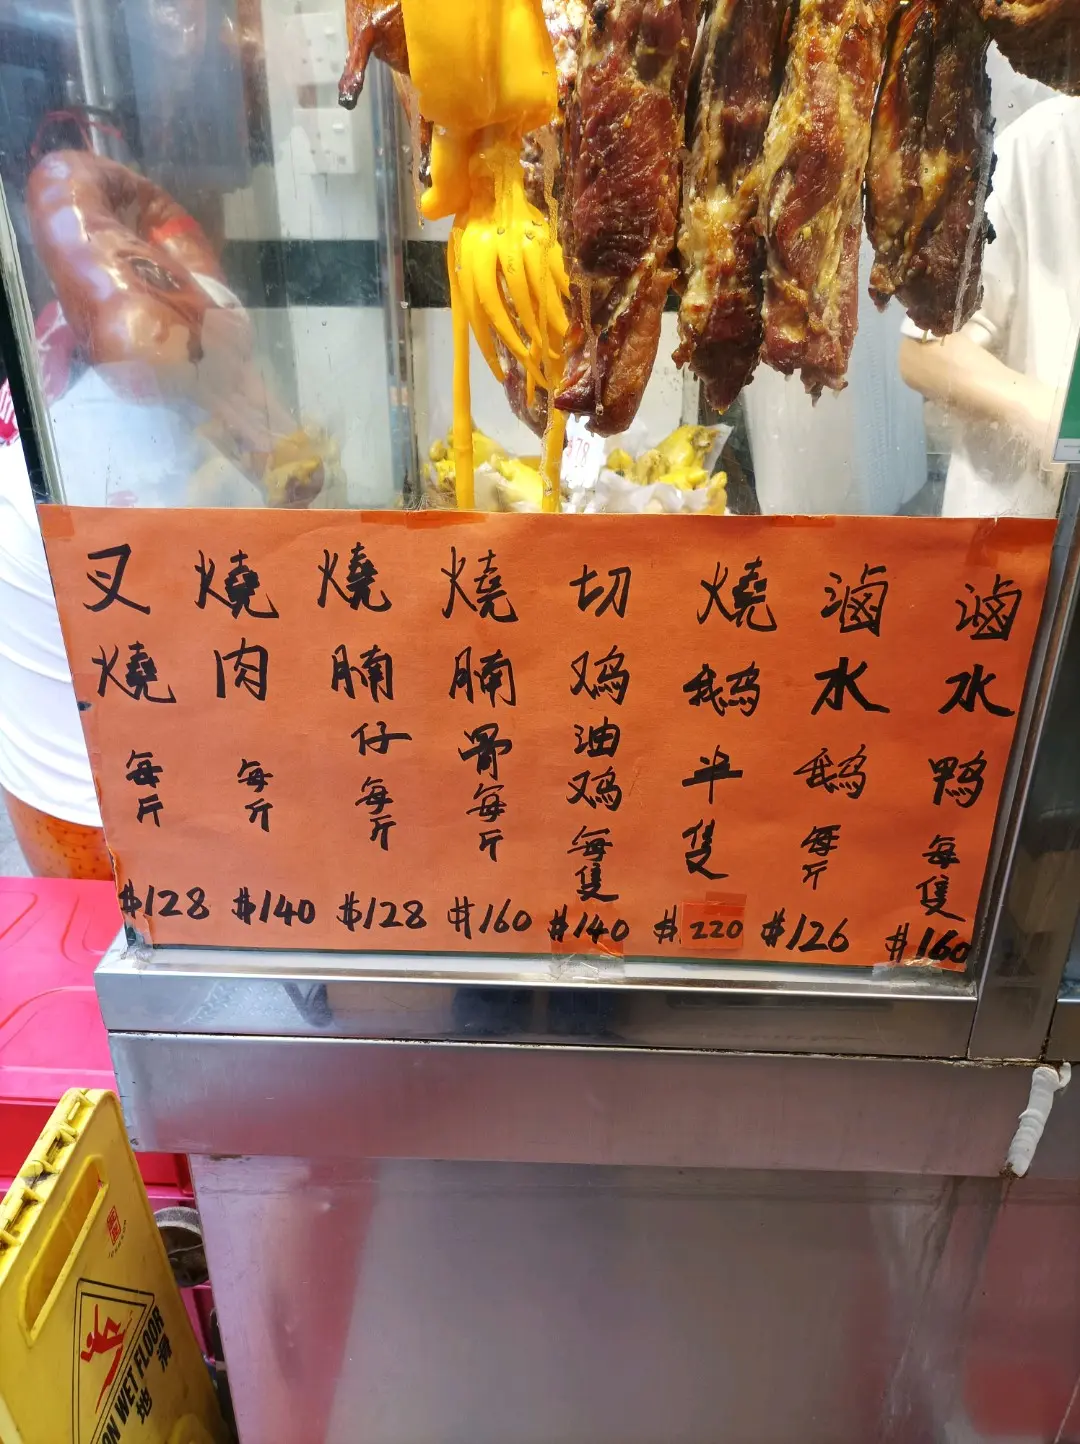 叉燒每斤 $128
燒肉每斤 $140
燒腩仔每斤 $128
燒腩骨每斤 $160
切鸡油鸡每隻 $140
燒鹅半隻 $220
滷水鹅每斤 $126
滷水鸭每隻 $160
$78
ON WET FLOOR
地滑